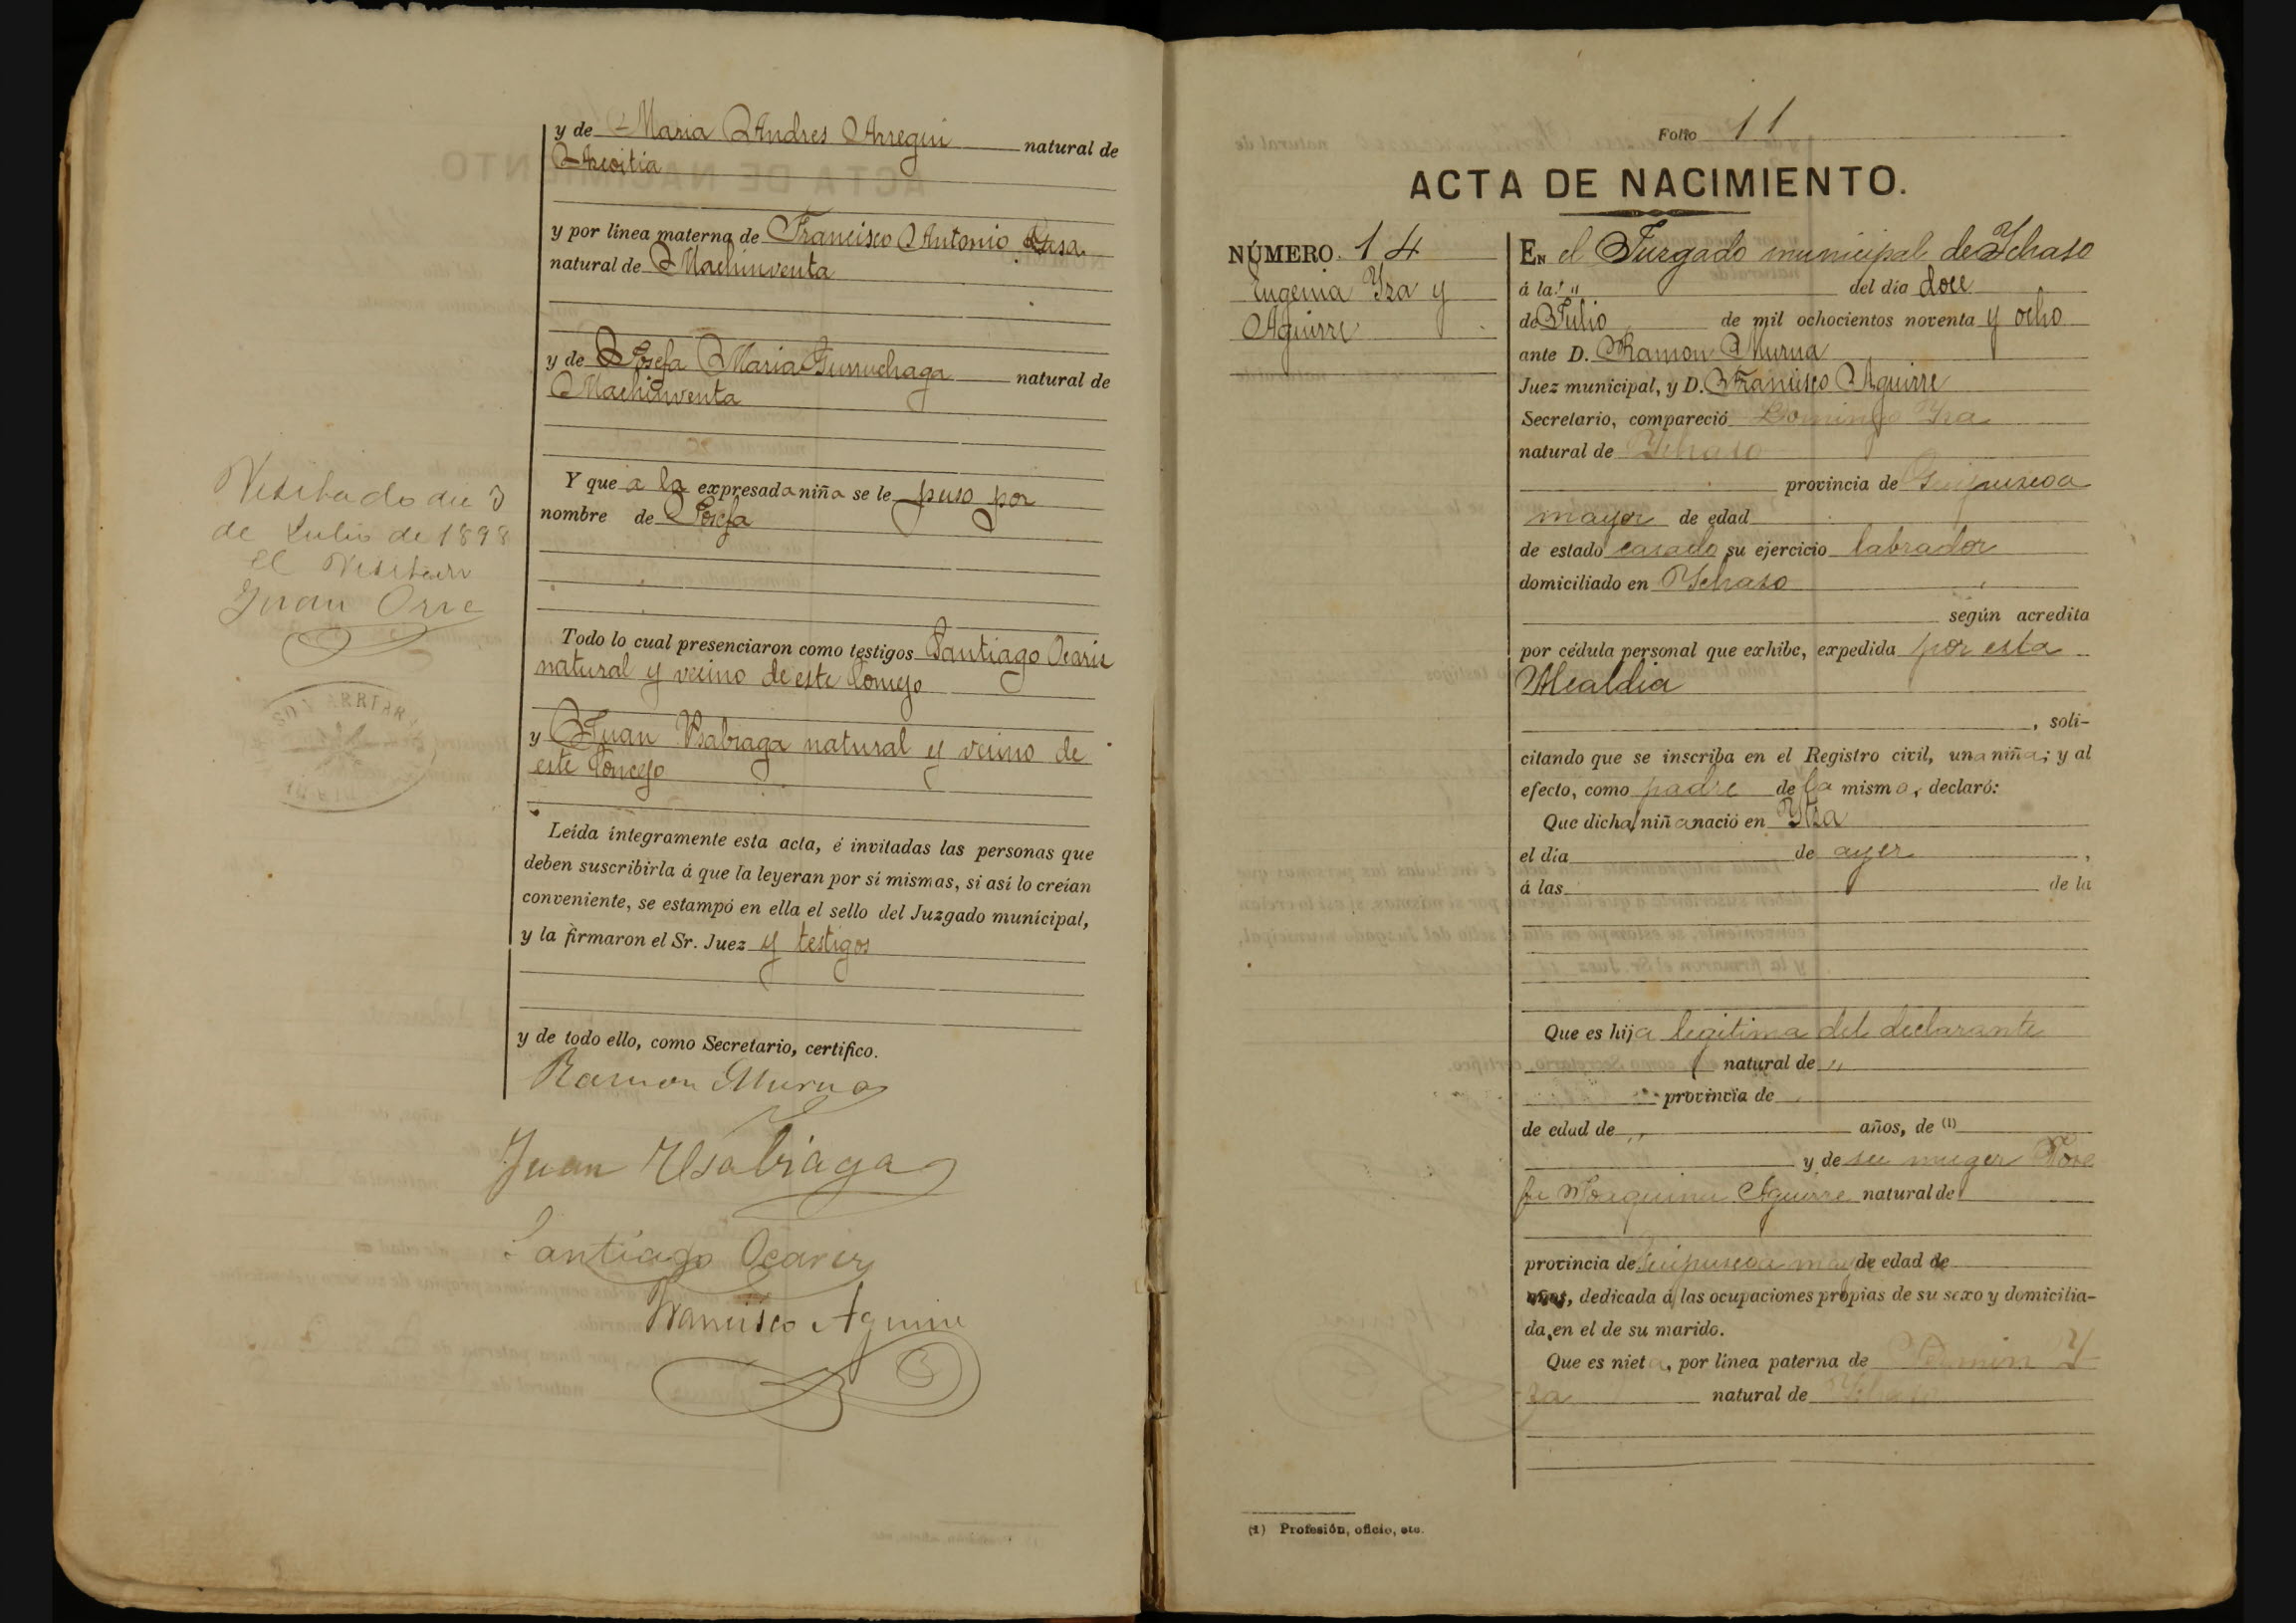 y de Maria Andres Arregui natural de
Azcoitia
y por línea materna de Francisco Antonio Lasa
natural de Machinventa
y de Josefa Maria Gurruchaga natural de
Machinventa
Y que a la expresada niña se le puso por
nombre de Josefa
Todo lo cual presenciaron como testigos Santiago Ocariz
natural y vecino de este Concejo
y Juan Usabiaga natural y vecino de
este Concejo
Leída íntegramente esta acta, é invitadas las personas que
deben suscribirla á que la leyeran por sí mismas, si así lo creían
conveniente, se estampó en ella el sello del Juzgado municipal,
y la firmaron el Sr. Juez y testigos
y de todo ello, como Secretario, certifico.
Ramon Murua
Juan Usabiaga
Santiago Ocariz
Francisco Aguirre
Visitado dia 3
de Julio de 1898
el Visitador
Juan Orue
Folio 11
ACTA DE NACIMIENTO.
NÚMERO 14
Eugenia Yza y
Aguirre
EN el Juzgado municipal de Ychaso
á las " del día doce
de Julio de mil ochocientos noventa y ocho
ante D. Ramon Murua
Juez municipal, y D. Francisco Aguirre
Secretario, compareció Domingo Yza
natural de Ychaso
provincia de Guipuzcoa
mayor de edad
de estado casado su ejercicio labrador
domiciliado en Ychaso
según acredita
por cédula personal que exhibe, expedida por esta
Alcaldia
, soli-
citando que se inscriba en el Registro civil, una niña; y al
efecto, como padre de la misma, declaró:
Que dicha niña nació en Yza
el día de ayer ,
á las de la
Que es hija legitima del declarante
natural de "
provincia de
de edad de " años, de (1)
y de su muger Jose
fa Joaquina Aguirre natural de
provincia de Guipuzcoa may de edad de
años, dedicada á las ocupaciones propias de su sexo y domicilia-
da, en el de su marido.
Que es nieta, por línea paterna de Fermin Y
za natural de Ychaso
(1) Profesión, oficio, etc.